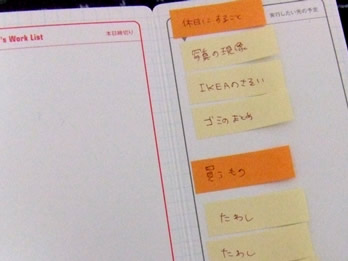 's Work List
本日締切り
休日にすること
実行したい他の予定
写真の現像
IKEAのさるい
ゴミのまとめ
買うもの
たわし
たわし